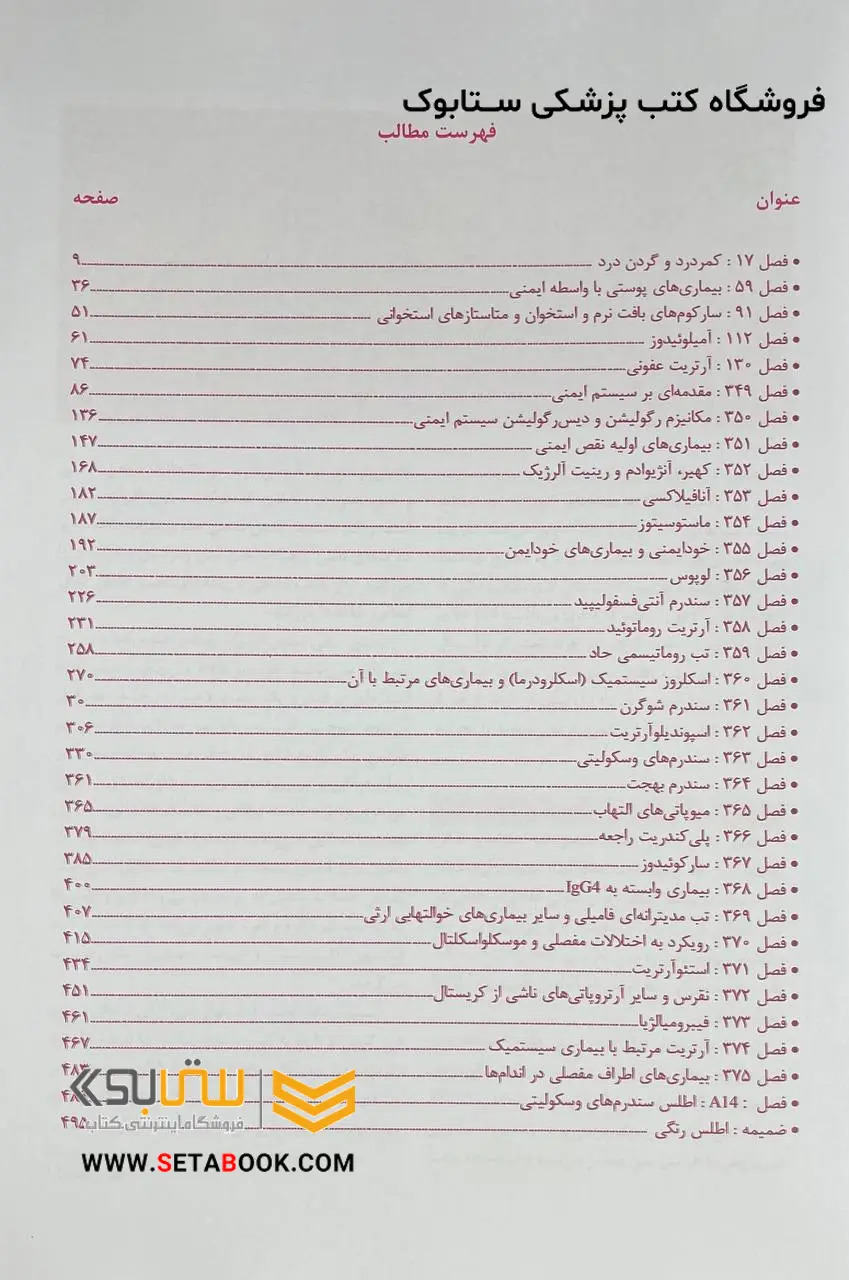 فروشگاه کتب پزشکی ستابوک
فهرست مطالب
عنوان صفحه
• فصل ۱۷ : کمردرد و گردن درد ۹
• فصل ۵۹ : بیماری‌های پوستی با واسطه ایمنی ۳۶
• فصل ۹۱ : سارکوم‌های بافت نرم و استخوان و متاستازهای استخوانی ۵۱
• فصل ۱۱۲ : آمیلوئیدوز ۶۱
• فصل ۱۳۰ : آرتریت عفونی ۷۴
• فصل ۳۴۹ : مقدمه‌ای بر سیستم ایمنی ۸۶
• فصل ۳۵۰ : مکانیزم رگولیشن و دیس‌رگولیشن سیستم ایمنی ۱۳۶
• فصل ۳۵۱ : بیماری‌های اولیه نقص ایمنی ۱۴۷
• فصل ۳۵۲ : کهیر، آنژیوادم و رینیت آلرژیک ۱۶۸
• فصل ۳۵۳ : آنافیلاکسی ۱۸۲
• فصل ۳۵۴ : ماستوسیتوز ۱۸۷
• فصل ۳۵۵ : خودایمنی و بیماری‌های خودایمن ۱۹۲
• فصل ۳۵۶ : لوپوس ۲۰۳
• فصل ۳۵۷ : سندرم آنتی‌فسفولیپید ۲۲۶
• فصل ۳۵۸ : آرتریت روماتوئید ۲۳۱
• فصل ۳۵۹ : تب روماتیسمی حاد ۲۵۸
• فصل ۳۶۰ : اسکلروز سیستمیک (اسکلرودرما) و بیماری‌های مرتبط با آن ۲۷۰
• فصل ۳۶۱ : سندرم شوگرن ۳۰
• فصل ۳۶۲ : اسپوندیلوآرتریت ۳۰۶
• فصل ۳۶۳ : سندرم‌های وسکولیتی ۳۳۰
• فصل ۳۶۴ : سندرم بهجت ۳۶۱
• فصل ۳۶۵ : میوپاتی‌های التهاب ۳۶۵
• فصل ۳۶۶ : پلی‌کندریت راجعه ۳۷۹
• فصل ۳۶۷ : سارکوئیدوز ۳۸۵
• فصل ۳۶۸ : بیماری وابسته به IgG4 ۴۰۰
• فصل ۳۶۹ : تب مدیترانه‌ای فامیلی و سایر بیماری‌های خوالتهابی ارثی ۴۰۷
• فصل ۳۷۰ : رویکرد به اختلالات مفصلی و موسکلواسکلتال ۴۱۵
• فصل ۳۷۱ : استئوآرتریت ۴۳۴
• فصل ۳۷۲ : نقرس و سایر آرتروپاتی‌های ناشی از کریستال ۴۵۱
• فصل ۳۷۳ : فیبرومیالژیا ۴۶۱
• فصل ۳۷۴ : آرتریت مرتبط با بیماری سیستمیک ۴۶۷
• فصل ۳۷۵ : بیماری‌های اطراف مفصلی در اندام‌ها ۴۸۳
• فصل : A14 : اطلس سندرم‌های وسکولیتی
• ضمیمه : اطلس رنگی ۴۹۵
ستابوک
فروشگاه اینترنتی کتاب
WWW.SETABOOK.COM